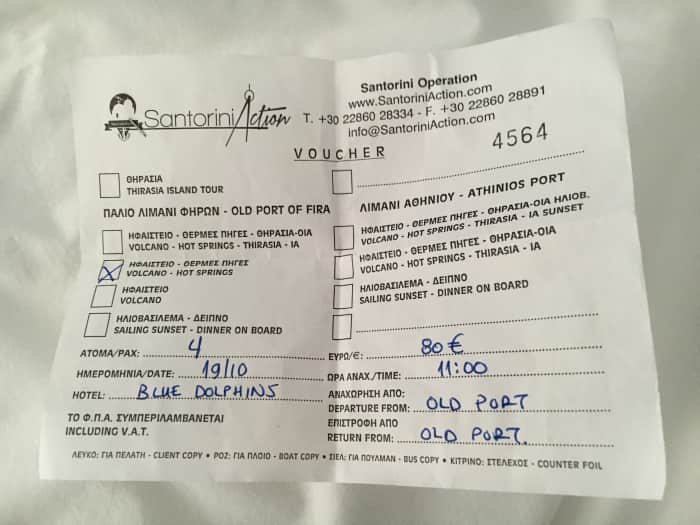 Santorini Action
Santorini Operation
www.SantoriniAction.com
T. +30 22860 28334 - F. +30 22860 28891
info@SantoriniAction.com
4564
VOUCHER
ΘΗΡΑΣΙΑ
THIRASIA ISLAND TOUR
ΠΑΛΙΟ ΛΙΜΑΝΙ ΦΗΡΩΝ - OLD PORT OF FIRA
ΗΦΑΙΣΤΕΙΟ - ΘΕΡΜΕΣ ΠΗΓΕΣ - ΘΗΡΑΣΙΑ-ΟΙΑ
VOLCANO - HOT SPRINGS - THIRASIA - IA
ΗΦΑΙΣΤΕΙΟ - ΘΕΡΜΕΣ ΠΗΓΕΣ
VOLCANO - HOT SPRINGS
ΗΦΑΙΣΤΕΙΟ
VOLCANO
ΗΛΙΟΒΑΣΙΛΕΜΑ - ΔΕΙΠΝΟ
SAILING SUNSET - DINNER ON BOARD
ΛΙΜΑΝΙ ΑΘΗΝΙΟΥ - ATHINIOS PORT
ΗΦΑΙΣΤΕΙΟ - ΘΕΡΜΕΣ ΠΗΓΕΣ - ΘΗΡΑΣΙΑ-ΟΙΑ ΗΛΙΟΒ.
VOLCANO - HOT SPRINGS - THIRASIA - IA SUNSET
ΗΦΑΙΣΤΕΙΟ - ΘΕΡΜΕΣ ΠΗΓΕΣ - ΘΗΡΑΣΙΑ-ΟΙΑ
VOLCANO - HOT SPRINGS - THIRASIA - IA
ΗΛΙΟΒΑΣΙΛΕΜΑ - ΔΕΙΠΝΟ
SAILING SUNSET - DINNER ON BOARD
ΑΤΟΜΑ/PAX: 4
ΗΜΕΡΟΜΗΝΙΑ/DATE: 19/10
HOTEL: BLUE DOLPHINS
ΤΟ Φ.Π.Α. ΣΥΜΠΕΡΙΛΑΜΒΑΝΕΤΑΙ
INCLUDING V.A.T.
ΕΥΡΩ/€: 80 €
ΩΡΑ ΑΝΑΧ./TIME: 11:00
ΑΝΑΧΩΡΗΣΗ ΑΠΟ:
DEPARTURE FROM: OLD PORT
ΕΠΙΣΤΡΟΦΗ ΑΠΟ
RETURN FROM: OLD PORT.
ΛΕΥΚΟ: ΓΙΑ ΠΕΛΑΤΗ - CLIENT COPY • ΡΟΖ: ΓΙΑ ΠΛΟΙΟ - BOAT COPY • ΣΙΕΛ: ΓΙΑ ΠΟΥΛΜΑΝ - BUS COPY • ΚΙΤΡΙΝΟ: ΣΤΕΛΕΧΟΣ - COUNTER FOIL